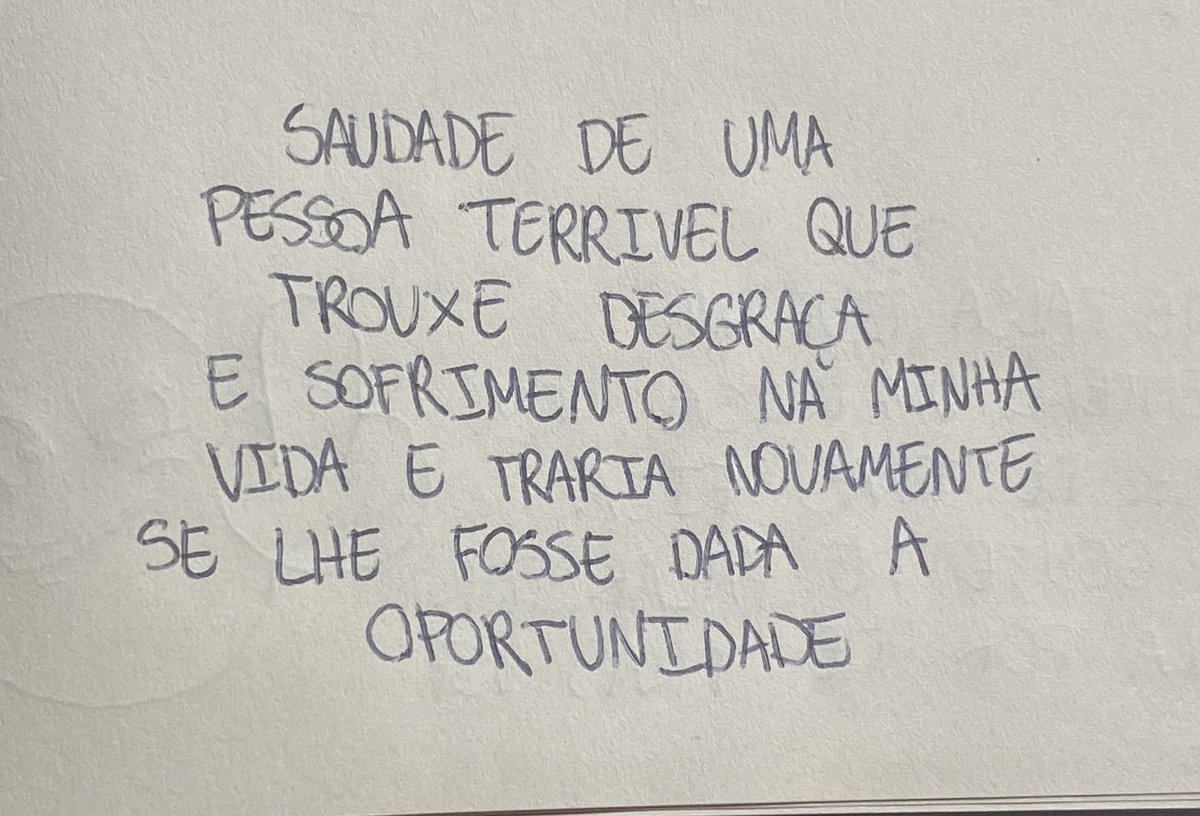 SAUDADE DE UMA
PESSOA TERRIVEL QUE
TROUXE DESGRAÇA
E SOFRIMENTO NA MINHA
VIDA E TRARIA NOVAMENTE
SE LHE FOSSE DADA A
OPORTUNIDADE